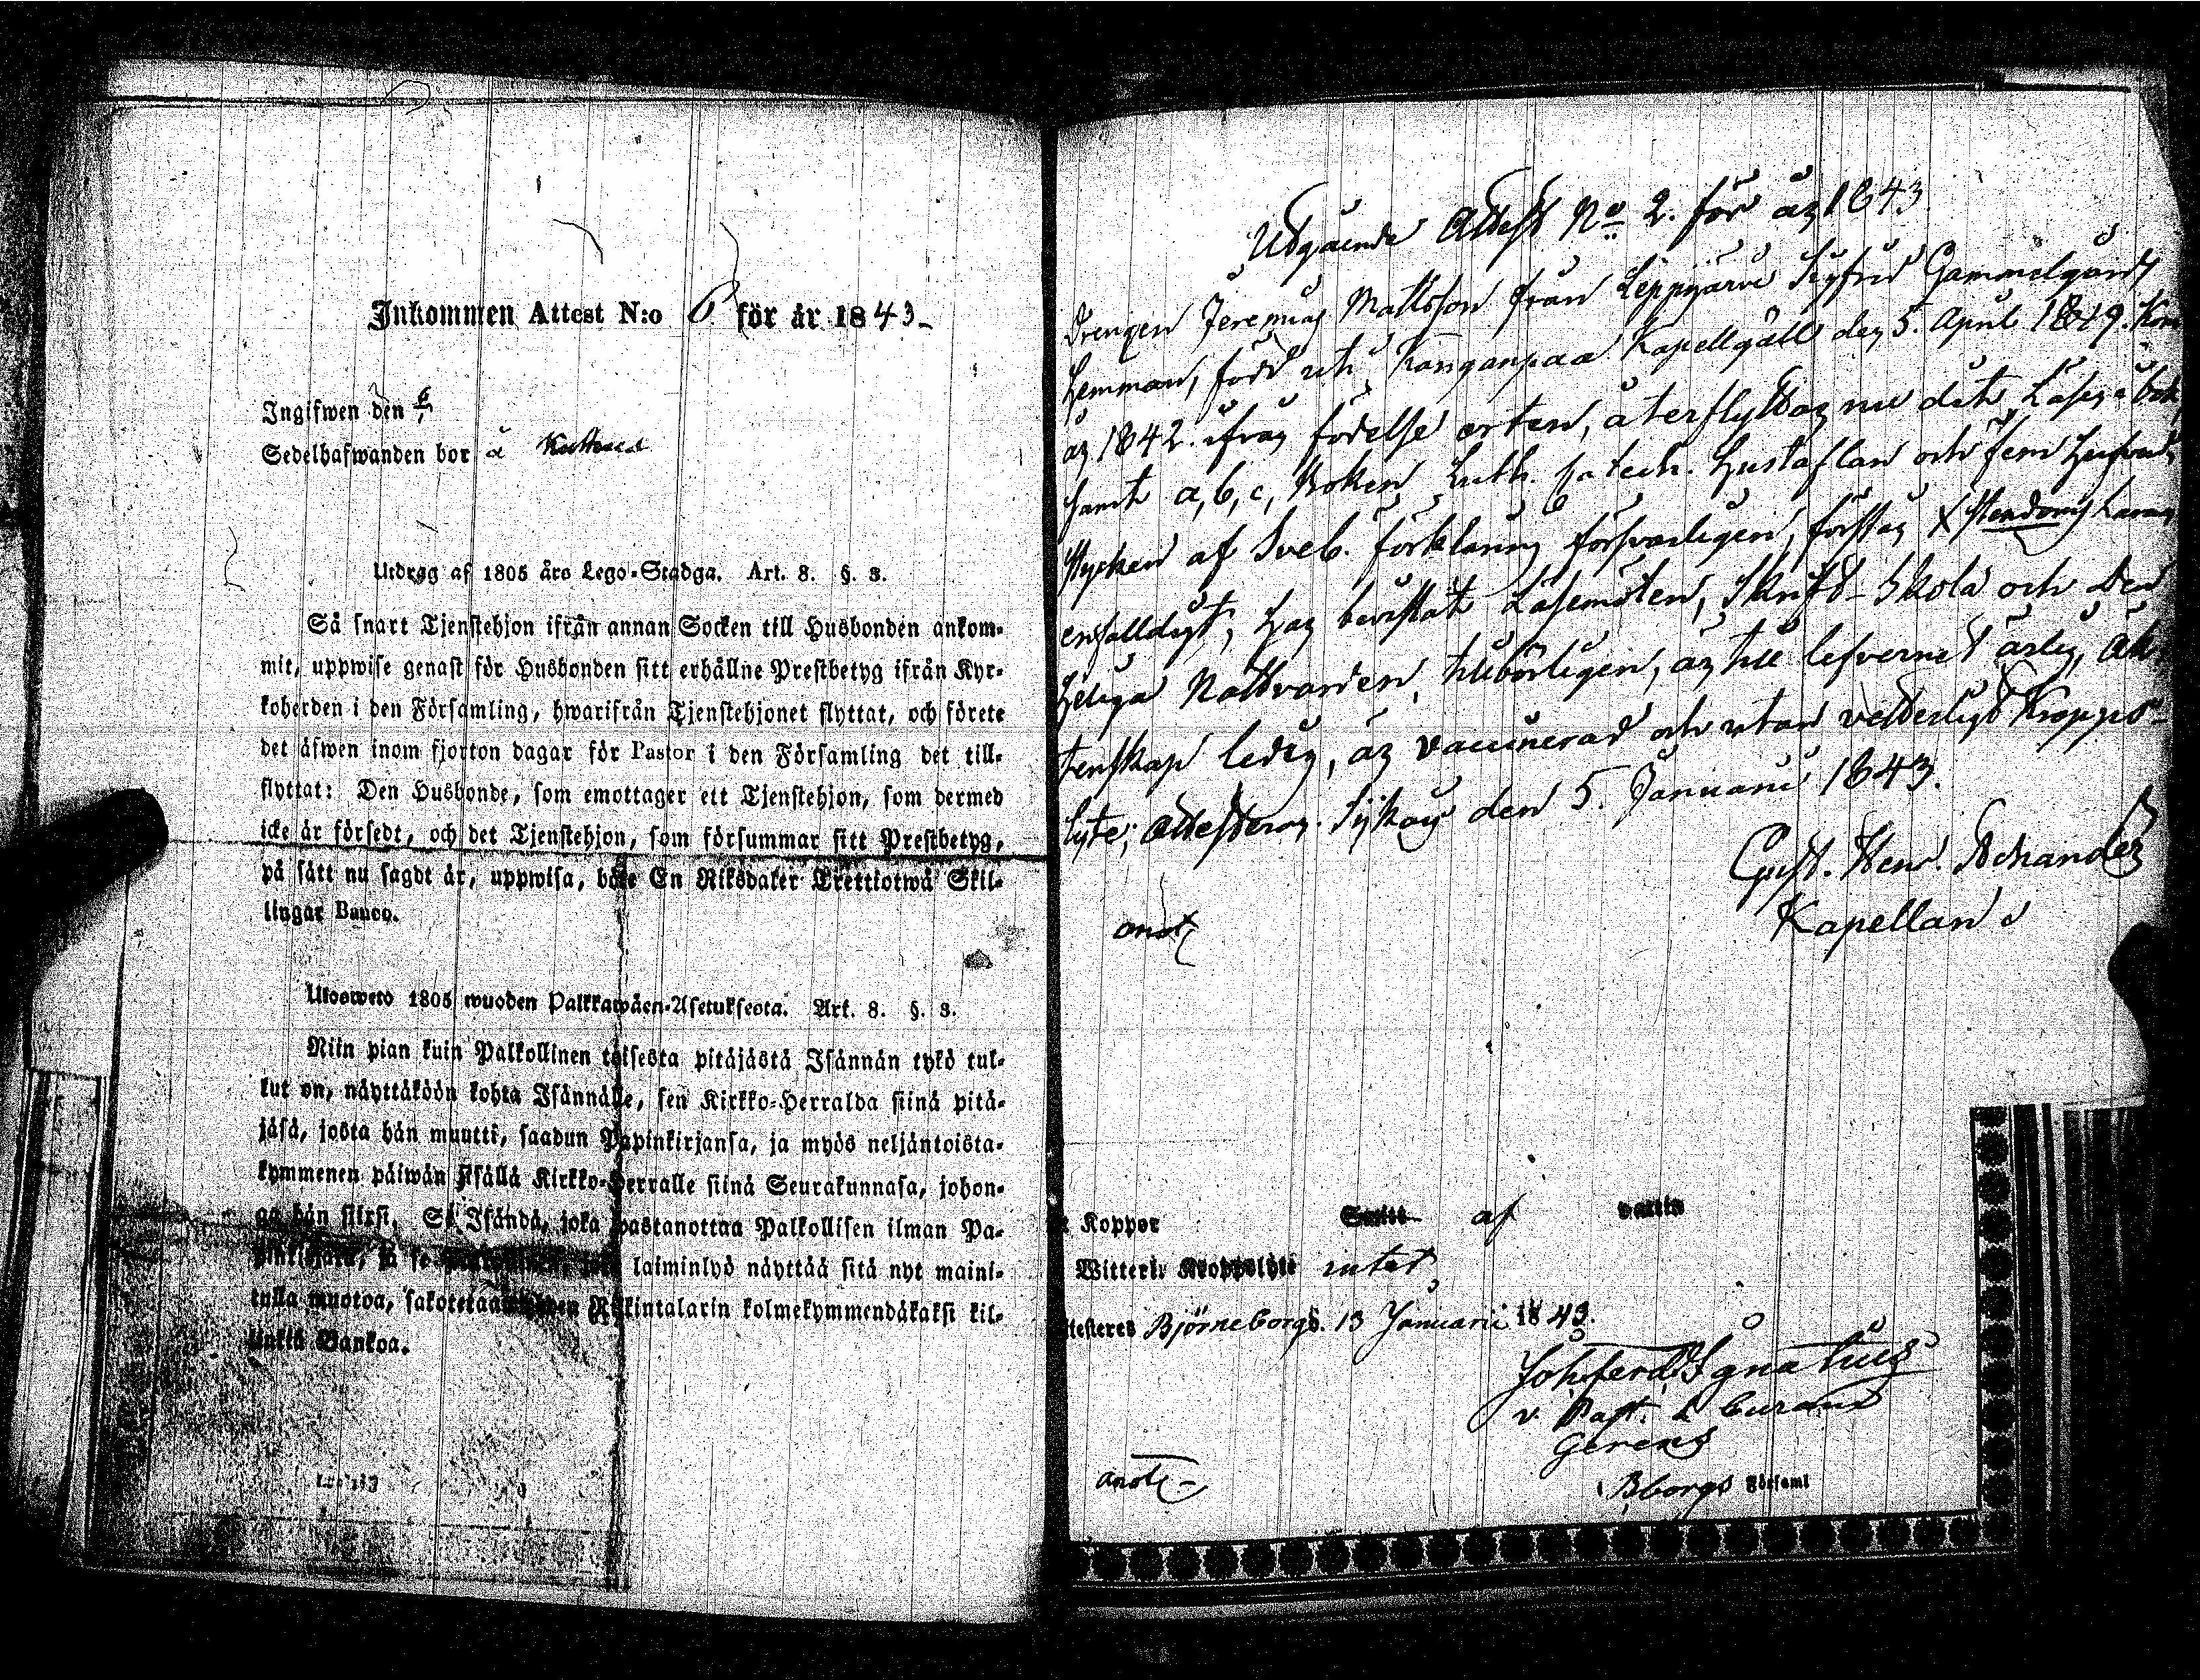 Inkommen Attest N:o 6. för år 1843-
Ingifwen den
Sedelhafwanden bor å
Utdrag af 1805 års Lego-Stadga. Art. 8. §. 3.
Så snart Tjenstehjon ifrån annan Socken till Husbonden ankom-
mit, uppwise genast för Husbonden sitt erhållne Prestbetyg ifrån Kyr-
koherden i den Församling, hwarifrån Tjenstehjonet flyttat, och förete
det äfwen inom fjorton dagar för Pastor i den Församling det till-
flyttat: Den Husbonde, som emottager ett Tjenstehjon, som dermed
icke är försedt, och det Tjenstehjon, som försummar sitt Prestbetyg,
på sätt nu sagdt är, uppwisa, böte En Riksdaler Trettiotwå Skil-
lingar Banco.
Ulosweto 1805 wuoden Palkkawäen-Asetuksesta. Art. 8. §. 3.
Niin pian kuin Palkollinen toisesta pitäjästä Isännän tykö tul-
lut on, näyttäköön kohta Isännälle, sen Kirkko-Herralda siinä pitä-
jäsä, josta hän muutti, saadun Papinkirjansa, ja myös neljäntoista-
kymmenen päiwän sisällä Kirkko-Herralle siinä Seurakunnasa, johon-
ga hän siirsi. Se Isändä, joka wastanottaa Palkollisen ilman Pa-
pinkirjata, ja se laiminlyö näyttää sitä nyt maini-
tulla muotoa, sakotetaan Riikintalarin kolmekymmendäkaksi kil-
linkiä Bankoa.
Utgående Attest No 2. för år 1843
Drengen Jeremias Mattsson från Leppijärvi Sigfrid Gammelgård
Hemman, född uti Kanganpää Kapellgäll den 5. April 1819. Kom
år 1842. ifrån födelse orten, återflyttar nu dit. Läser i bok
samt a, b, c, Boken Luth. Catech. Hustaflan och fem
stycken af Sveb. förklaring försvarligen, förstår Christendoms Läran
enfalldigt, Har bevistat Läsemöten, Skrift-Skola och Den
Heliga Nattvarden tillbörligen, är till lefvernet ärlig, äk-
tenskap ledig, är vaccinerad och utan vetterligt Kropps-
lyte; attesterar. Sijkais den 5. Januarii 1843.
Gust. Henr.
Kapellan
anot
Koppor af
Witterl. Kroppslyte intet
ttesteres Björneborgs. 13 Januarii 1843.
Joh. Ferd. Ignatius
v. Past. & Curam
Gerens
anot-
Bborgs Församl